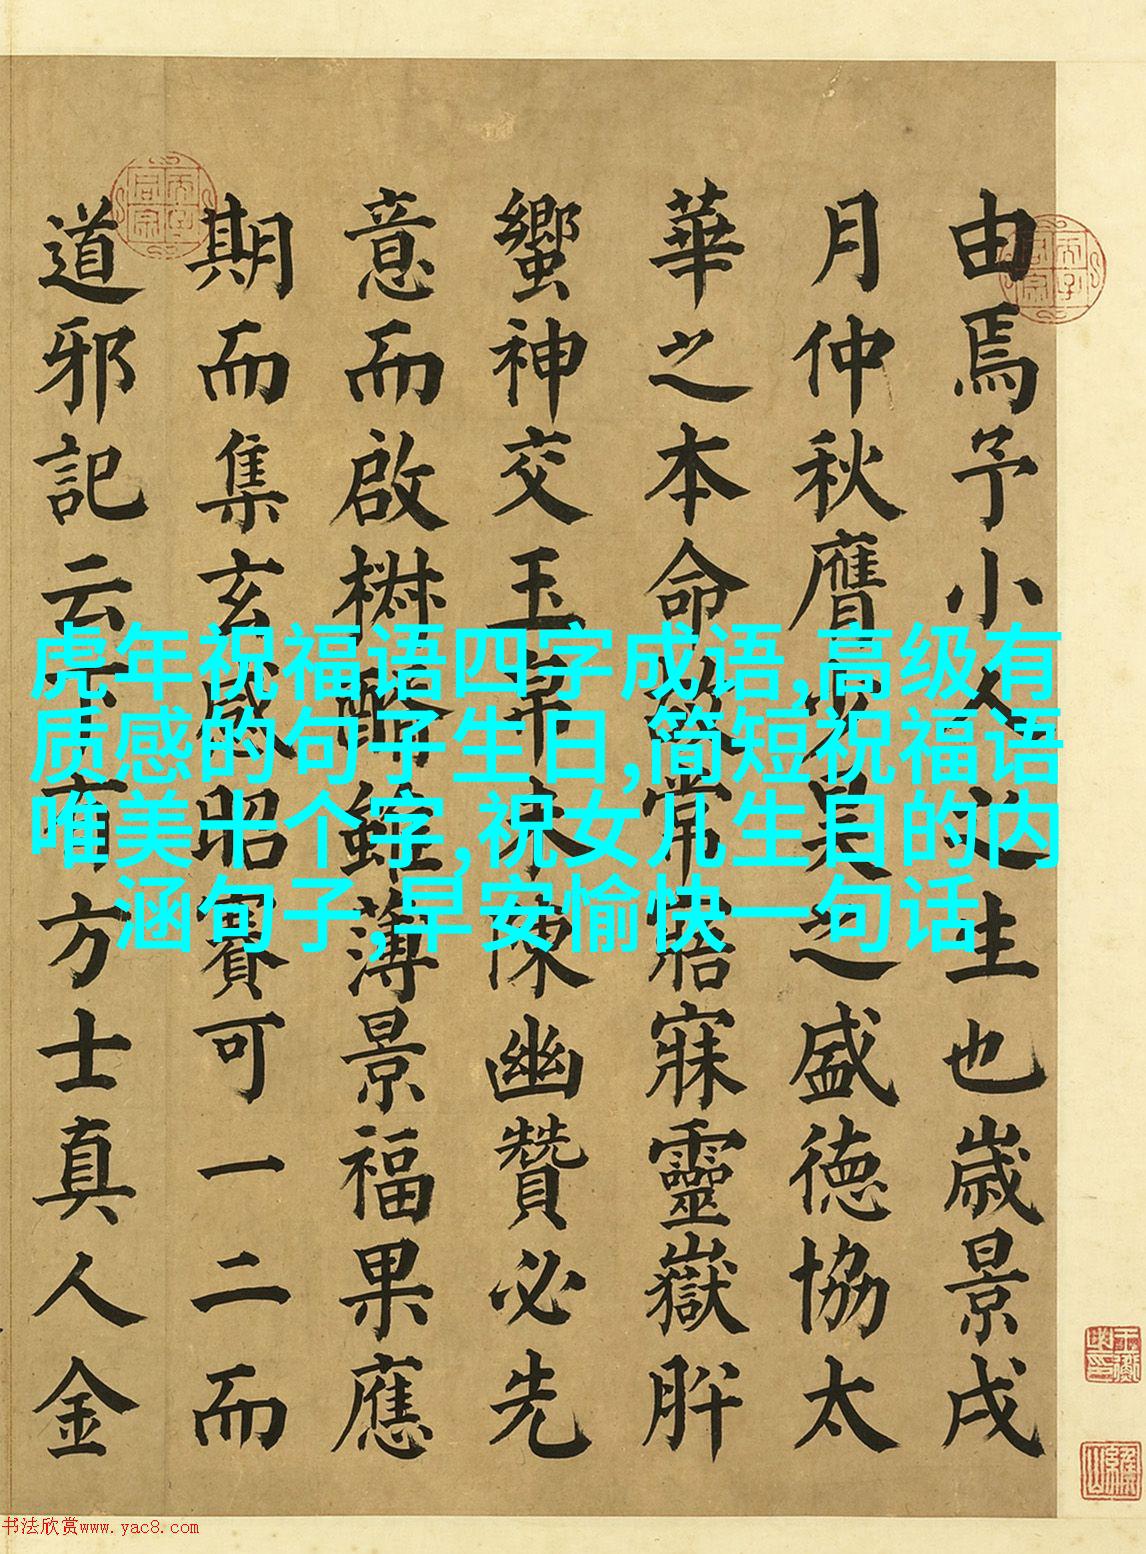 由焉予小之生也歲景戌
月仲秋膺少昊之盛德協太
華之本命故常寤寐靈嶽肸
蠁神交玉未陳幽贊必先
意而啟椒醑雖薄景福果應
期而集玄感昭賽可一二而
道邪記云有方士真人金
虎年祝福语四字成语,高级有
质感的句子生日,简短祝福语
唯美十个字,祝女儿生日的内
涵句子,早安愉快一句话
书法欣赏www.yac8.com